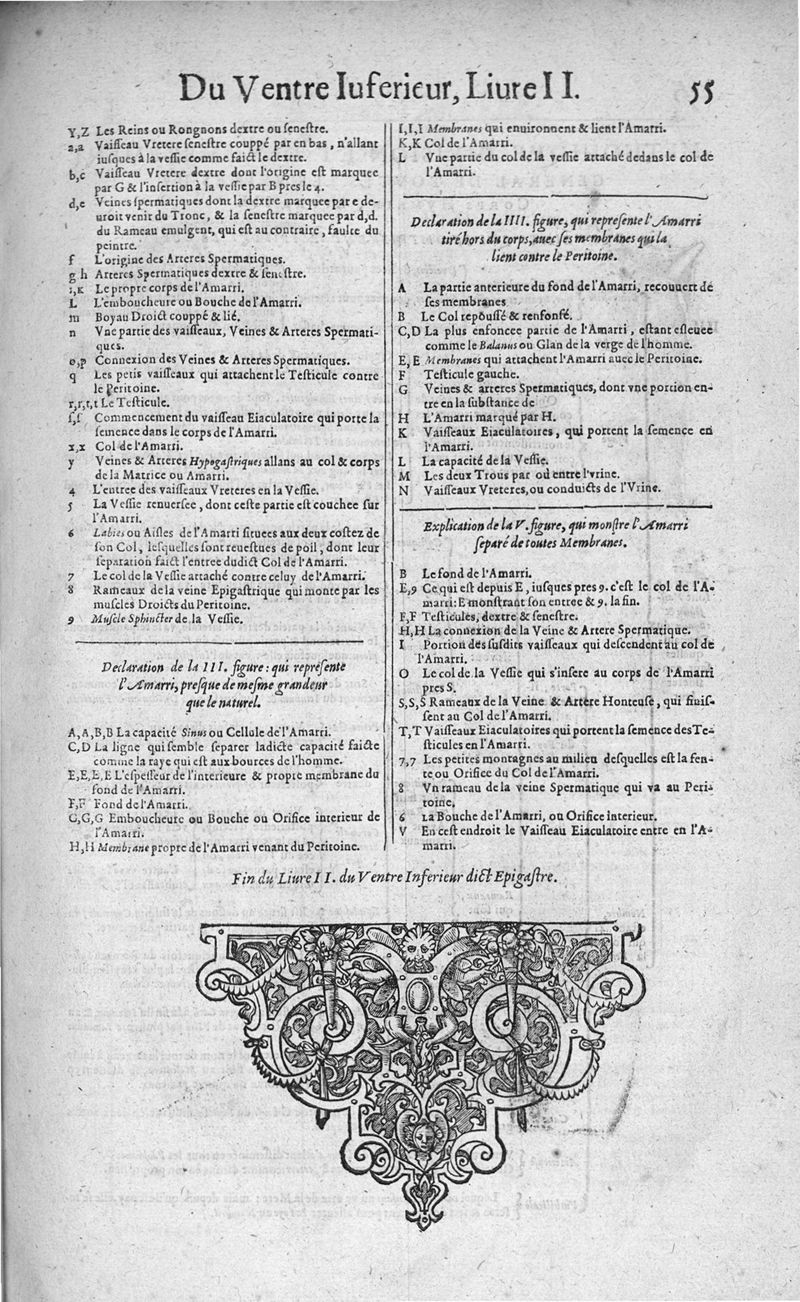 Du Ventre Iuferieur, Liure II. 55
Y,Z Les Reins ou Rongnons dextre ou ſeneſtre.
a,a Vaiſſeau Vretere ſeneſtre couppé par en bas, n'allant
iuſques à la veſſie comme faict le dextre.
b,c Vaiſſeau Vretere dextre dont l'origine eſt marquee
par G & l'inſertion à la veſſie par B pres le 4.
d,e Veines ſpermatiques dont la dextre marquee par e de-
uroit venir du Tronc, & la ſeneſtre marquee par d,d.
du Rameau emulgent, qui eſt au contraire, faulte du
peintre.
f L'origine des Arteres Spermatiques.
g h Arteres Spermatiques dextre & ſeneſtre.
i,K Le propre corps de l'Amarri.
L L'emboucheure ou Bouche de l'Amarri.
m Boyau Droict couppé & lié.
n Vne partie des vaiſſeaux, Veines & Arteres Spermati-
ques.
o,p Connexion des Veines & Arteres Spermatiques.
q Les petis vaiſſeaux qui attachent le Teſticule contre
le Peritoine.
r,r,t,t Le Teſticule.
ſ,ſ Commencement du vaiſſeau Eiaculatoire qui porte la
ſemence dans le corps de l'Amarri.
x,x Col de l'Amarri.
y Veines & Arteres Hypogaſtriques allans au col & corps
de la Matrice ou Amarri.
4 L'entree des vaiſſeaux Vreteres en la Veſſie.
5 La Veſſie renuerſee, dont ceſte partie eſt couchee ſur
l'Amarri.
6 Labies ou Aiſles de l'Amarri ſituees aux deux coſtez de
ſon Col, leſquelles ſont reueſtues de poil, dont leur
ſeparation faict l'entree dudict Col de l'Amarri.
7 Le col de la Veſſie attaché contre celuy de l'Amarri.
8 Rameaux de la veine Epigaſtrique qui monte par les
muſcles Droicts du Peritoine.
9 Muſcle Sphincter de la Veſſie.
Declaration de la III. figure: qui repreſente
l'Amarri, preſque de meſme grandeur
que le naturel.
A,A,B,B La capacité Sinus ou Cellule de l'Amarri.
C,D La ligne qui ſemble ſeparer ladicte capacité faicte
comme la raye qui eſt aux bources de l'homme.
E,E,E,E L'eſpeſſeur de l'interieure & propre membrane du
fond de l'Amarri.
F,F Fond de l'Amarri.
G,G,G Emboucheure ou Bouche ou Orifice interieur de
l'Amarri.
H,H Membrane propre de l'Amarri venant du Peritoine.
I,I,I Membranes qui enuironnent & lient l'Amarri.
K,K Col de l'Amarri.
L Vne partie du col de la veſſie attaché dedans le col de
l'Amarri.
Declaration de la IIII. figure, qui repreſente l'Amarri
tiré hors du corps, auec ſes membranes qui la
lient contre le Peritoine.
A La partie anterieure du fond de l'Amarri, recouuert de
ſes membranes
B Le Col repouſſé & renfonſé.
C,D La plus enfoncee partie de l'Amarri, eſtant eſleuee
comme le Balanus ou Glan de la verge de l'homme.
E, E Membranes qui attachent l'Amarri auec le Peritoine.
F Teſticule gauche.
G Veines & arteres Spermatiques, dont vne portion en-
tre en la ſubſtance de
H L'Amarri marqué par H.
K Vaiſſeaux Eiaculatoires, qui portent la ſemence en
l'Amarri.
L La capacité de la Veſſie.
M Les deux Trous par où entre l'vrine.
N Vaiſſeaux Vreteres, ou conduicts de l'Vrine.
Explication de la V. figure, qui monſtre l'Amarri
ſeparé de toutes Membranes.
B Le fond de l'Amarri.
E,9 Ce qui eſt depuis E, iuſques pres 9. c'eſt le col de l'A-
marri: E monſtrant ſon entree & 9. la fin.
F,F Teſticules, dextre & ſeneſtre.
H,H La connexion de la Veine & Artere Spermatique.
I Portion des ſuſdits vaiſſeaux qui deſcendent au col de
l'Amarri.
O Le col de la Veſſie qui s'inſere au corps de l'Amarri
pres S.
S,S,S Rameaux de la Veine & Artere Honteuſe, qui finiſ-
ſent au Col de l'Amarri.
T,T Vaiſſeaux Eiaculatoires qui portent la ſemence des Te-
ſticules en l'Amarri.
7,7 Les petites montagnes au milieu deſquelles eſt la fen-
te ou Orifice du Col de l'Amarri.
8 Vn rameau de la veine Spermatique qui va au Peri-
toine.
6 La Bouche de l'Amarri, ou Orifice interieur.
V En ceſt endroit le Vaiſſeau Eiaculatoire entre en l'A-
marri.
Fin du Liure II. du Ventre Inferieur dict Epigaſtre.